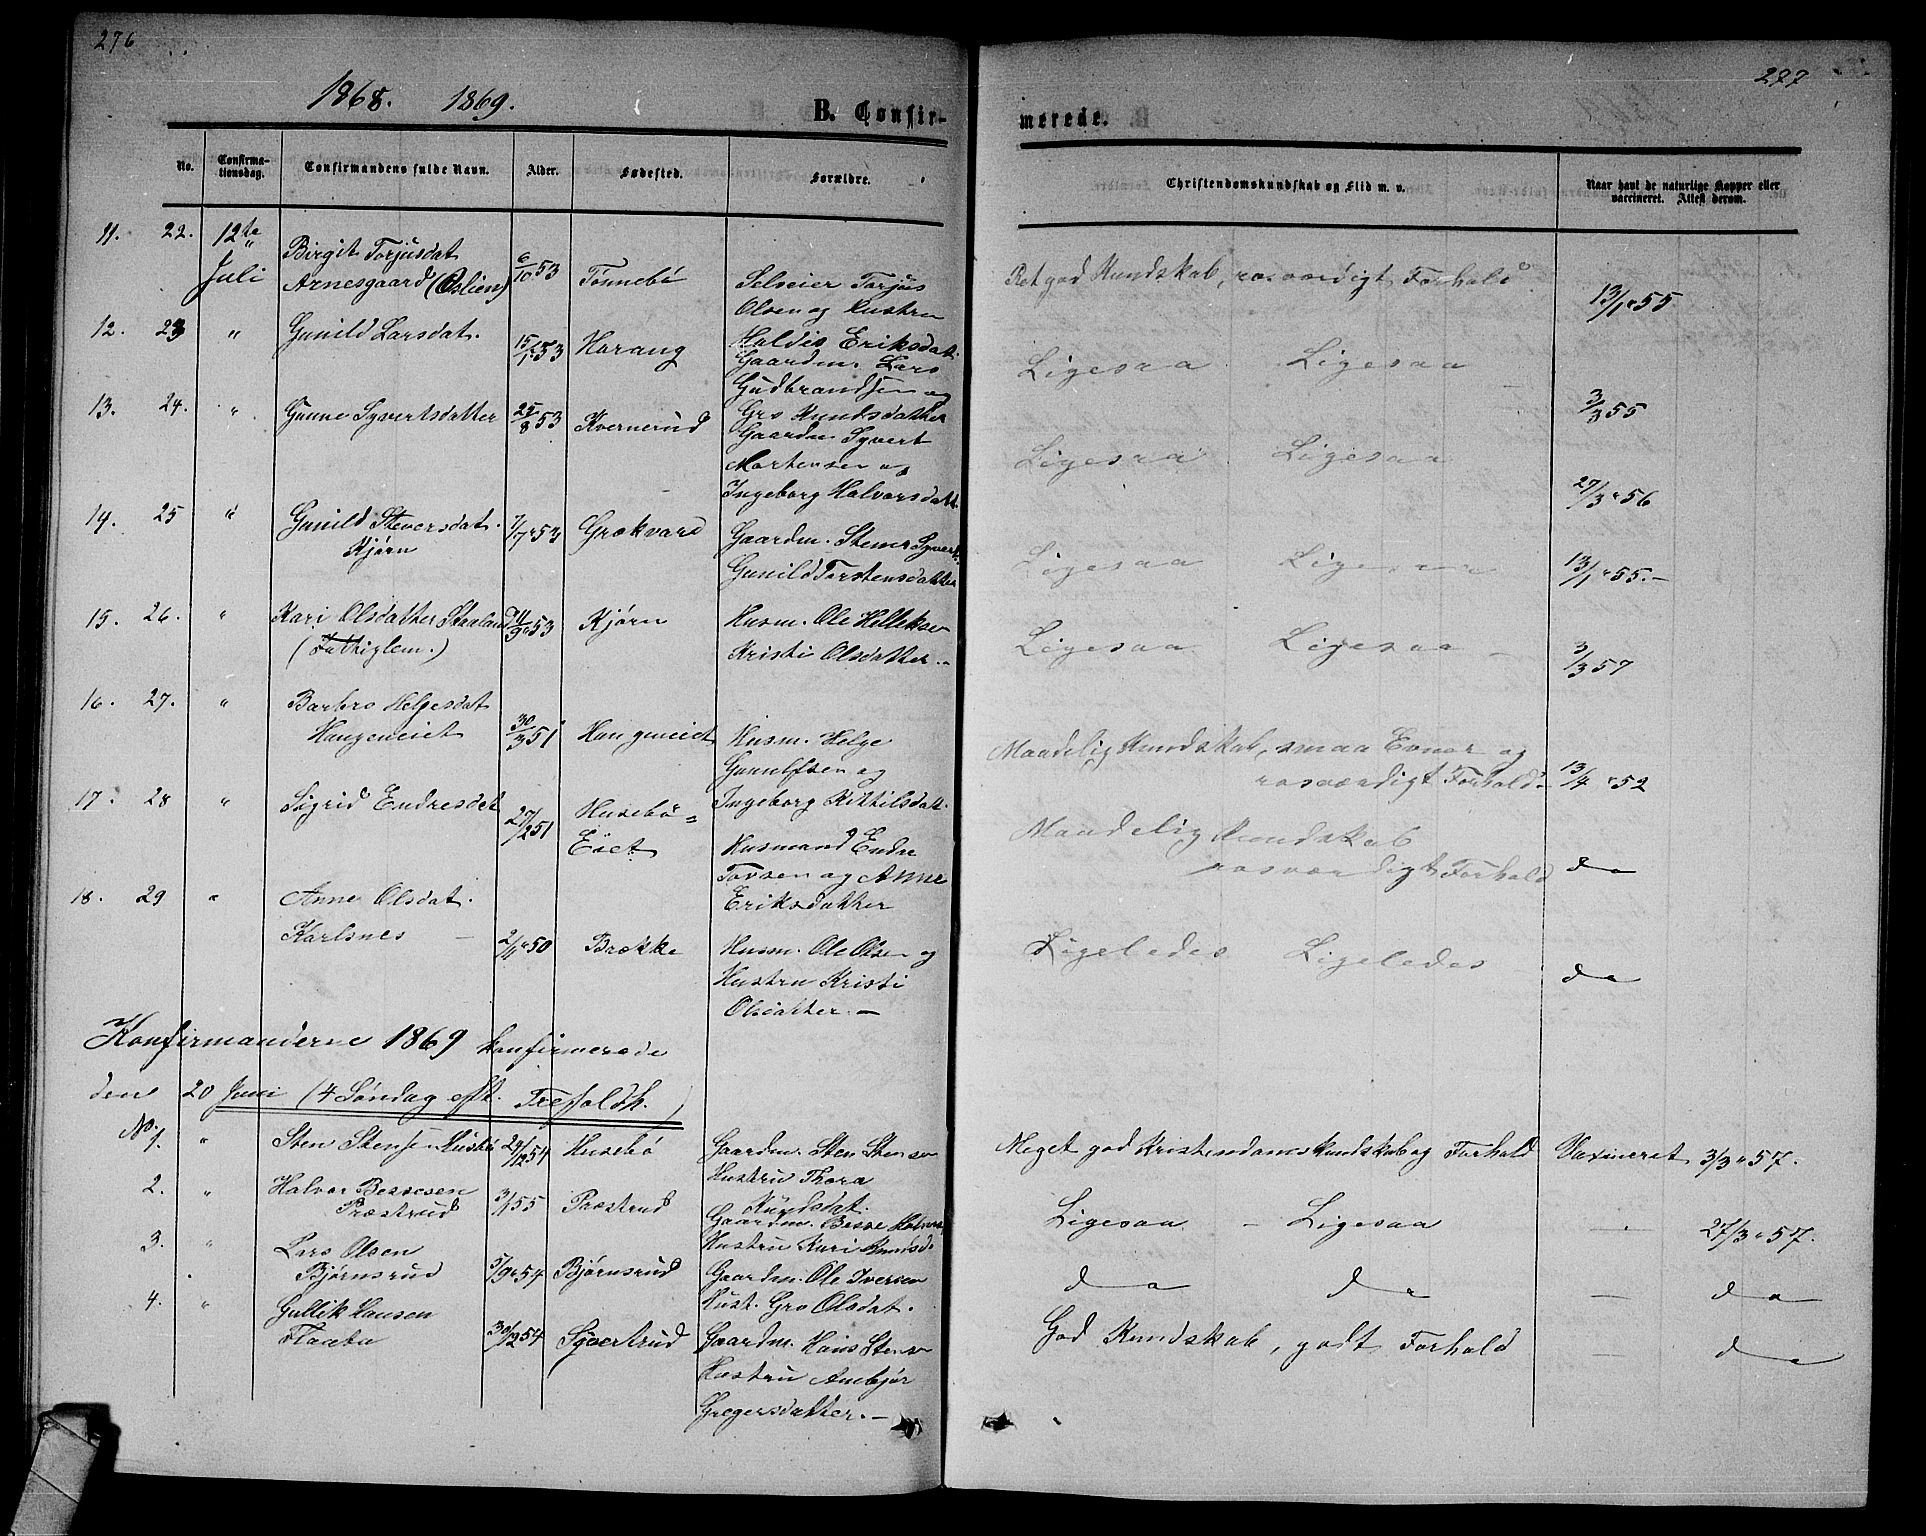 276
1868. 1869.
B. Confir-
No.
Confirma-
tionsdag.
Confirmandens fulde Navn.
Alder.
Fødested.
Forældre.
11. 22. 12te Juli
Birgit Torjusdat
Arnesgaard (Oslien)
6/10 53
Tønnebø
Selveier Torjus
Olsen og Hustru
Haldis Eriksdat.
12. 23 "
Gunild Larsdat.
15/1 53
Harang
Gaardm. Lars
Gudbrandsen og
Gro Knudsdatter
13. 24. "
Gunne Syvertsdatter
25/8 53
Kvernerud
Gaardm Syvert
Mortensen og
Ingeborg Halvorsdatt.
14. 25 "
Gunild Steversdat.
Kjørn
7/7 53
Grøkvard
Gaardm. Stener Syverts.
Gunild Torstensdatter
15. 26. "
Kari Olsdatter Skaaland
(Fattiglem.)
21/9 53
Kjørn
Husm. Ole Helleksen
Kristi Olsdatter. -
16. 27. "
Barbro Helgesdat
Haugeneiet
30/3 51
Haugeneiet
Husm. Helge
Gunulfsen og
Ingeborg Kittilsdat.
17. 28 "
Sigrid Endresdat
27/2 51
Husebø=
Eiet
Husmand Endre
Tovsen og Anne
Eriksdatter
18. 29 "
Anne Olsdat.
Karlsnes -
2/11 50
Brække
Husm. Ole Olsen og
Hustru Kristi
Olsdatter. -
Konfirmanderne 1869 konfirmerede
den 20 Juni (4 Søndag eft. Trefoldh.)
No. 1. "
Sten Stensen Husebø
29/12 54
Husebø
Gaardm. Sten Stensen
Hustru Thora
Knudsdat.
2. "
Halvor Bessesen
Præstrud
3/1 55
Præstrud
Gaardm. Besse Halvors.
Hustru Kari Knudsd.
3. "
Lars Olsen
Bjørnsrud
5/9 54
Bjørnsrud
Gaardm. Ole Iversen
Hust. Gro Olsdat.
4. "
Gullik Hansen
Flaata
30/12 54
Syvertrud
Gaardm. Hans Stensen
Hustru Ambjør
Gregersdatter. -
277
merede.
Christendomskundskab og Flid m. v.
Naar havt de naturlige Kopper eller
vaccineret. Attest derom.
Ret god Kundskab, rosværdigt Forhold
13/1 55
Ligesaa Ligesaa
3/3 55
Ligesaa Ligesaa
27/3 56
Ligesaa Ligesaa
13/1 55. -
Ligesaa Ligesaa -
3/3 57
Maadelig Kundskab, smaa Evner og
rosværdigt Forhold
13/4 52
Maadelig Kundskab
rosværdigt Forhold
do
Ligeledes Ligeledes
do
Meget god Kristendomskundskab og Forhold Vaxineret 3/3 57.
Ligesaa - Ligesaa - 27/3 57.
do do - do
God Kundskab, godt Forhold - do